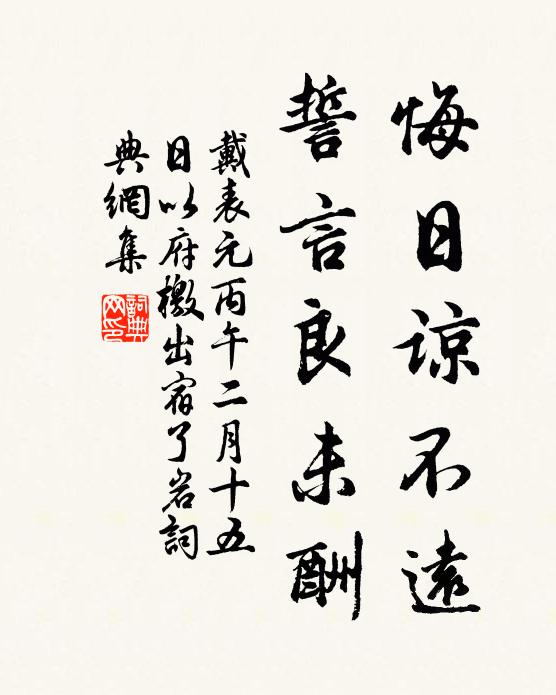 悔日諒不遠
誓言良未酬
戴表元丙午二月十五
日以府檄出宿了岩詞
典網集
詞典網印